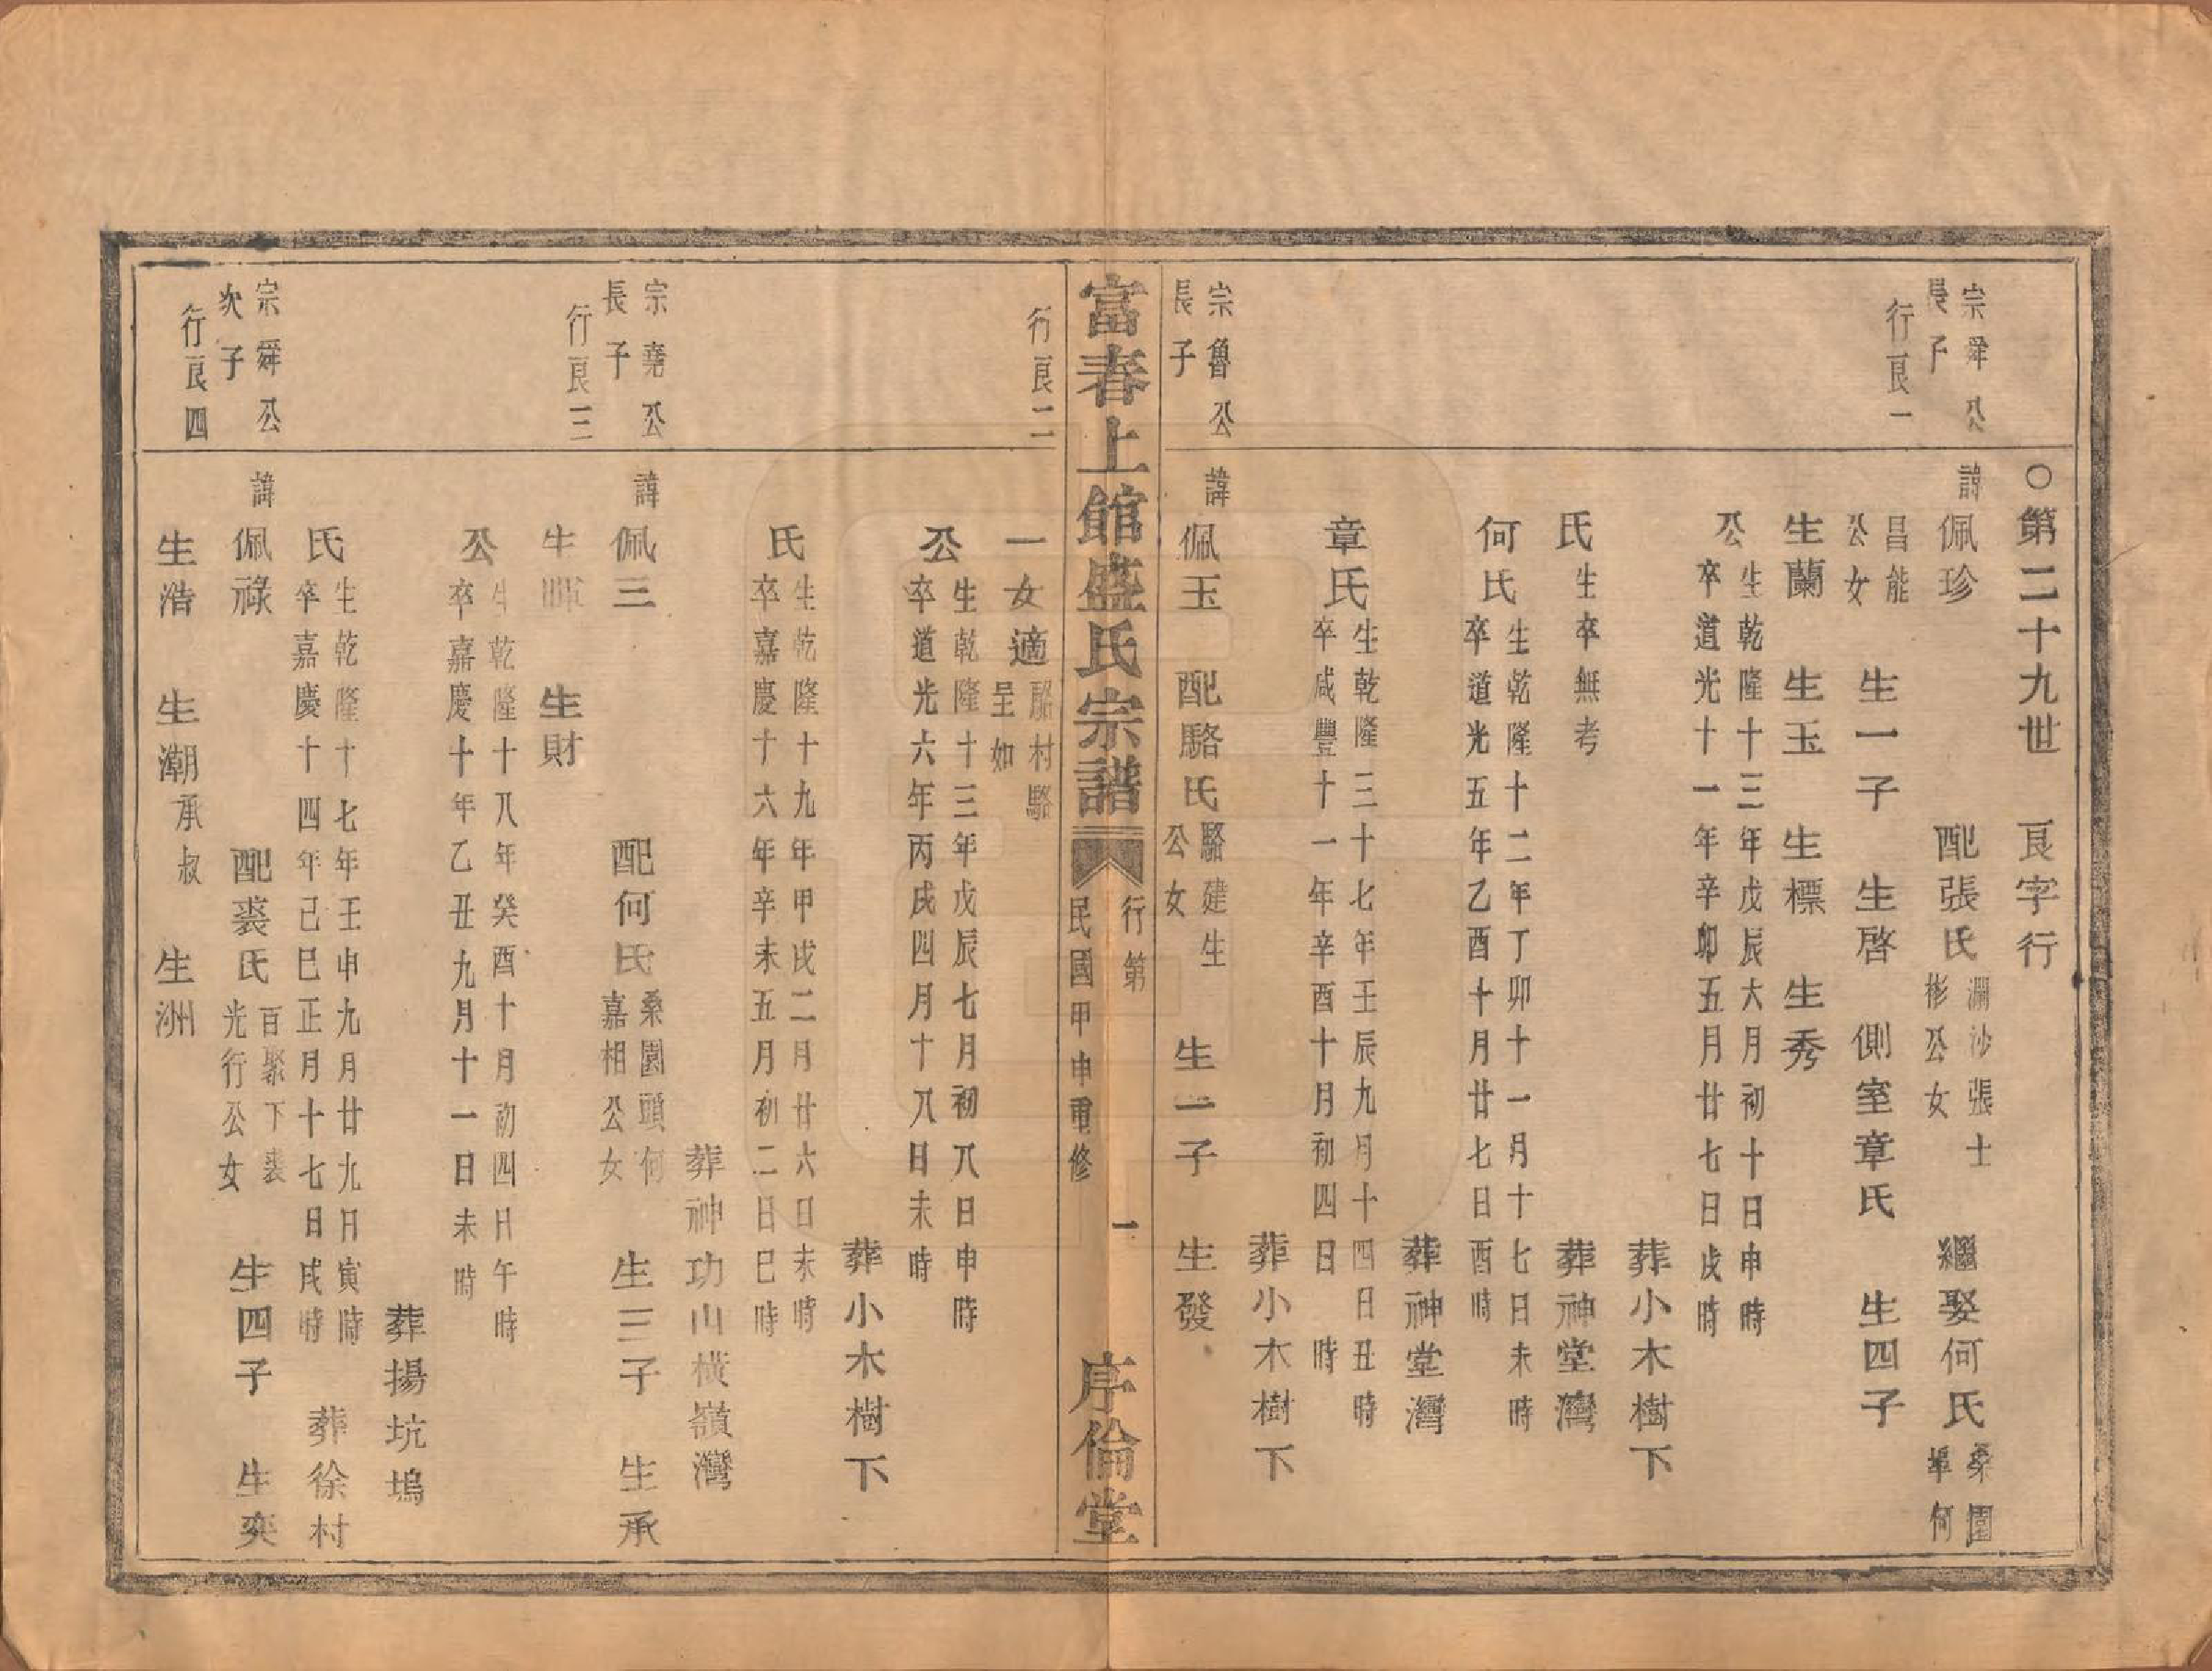 ○第二十九世　艮字行
宗舜公
長子
行艮一
諱佩珍　配張氏
瀾沙張士
彬公女
繼娶何氏
桑園
埠何
昌能
公女
生一子　生啓　側室章氏　生四子
生蘭　生玉　生標　生秀
公
生乾隆十三年戊辰六月初十日申時
卒道光十一年辛卯五月廿七日戌時
葬小木樹下
氏生卒無考　葬神堂灣
何氏
生乾隆十二年丁卯十一月十七日未時
卒道光五年乙酉十月廿七日酉時
葬神堂灣
章氏
生乾隆三十七年壬辰九月十四日丑時
卒咸豐十一年辛酉十月初四日　時
葬小木樹下
宗魯公
長子
諱佩玉　配駱氏
駱建生
公女
生一子　生發
富春上館盛氏宗譜
行第
民國甲申重修
一
序倫堂
行艮二
一女適
駱村駱
呈如
公
生乾隆十三年戊辰七月初八日申時
卒道光六年丙戌四月十八日未時
葬小木樹下
氏
生乾隆十九年甲戌二月廿六日未時
卒嘉慶十六年辛未五月初二日巳時
葬神功山橫嶺灣
宗堯公
長子
行艮三
諱佩三　配何氏
桑園頭何
嘉相公女
生三子　生承
生暉　生財
公
生乾隆十八年癸酉十月初四日午時
卒嘉慶十年乙丑九月十一日未時
葬揚坑塢
氏
生乾隆十七年壬申九月廿九日寅時
卒嘉慶十四年己巳正月十七日戌時
葬徐村
宗舜公
次子
行艮四
諱佩祿　配裘氏
百聚下裘
光行公女
生四子　生奕
生浩　生潮承叔　生洲